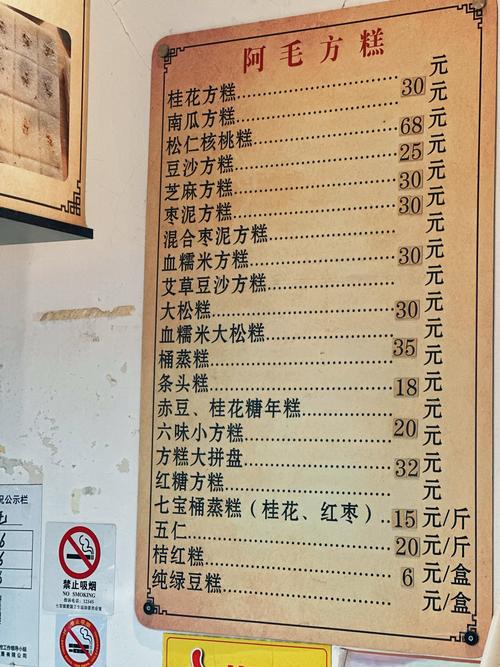 阿毛方糕
桂花方糕 30 元
南瓜方糕 元
松仁核桃糕 68 元
豆沙方糕 25 元
芝麻方糕 30 元
枣泥方糕 30 元
混合枣泥方糕 元
血糯米方糕 30 元
艾草豆沙方糕 元
大松糕 30 元
血糯米大松糕 35 元
桶蒸糕 元
条头糕 18 元
赤豆、桂花糖年糕 20 元
六味小方糕 元
方糕大拼盘 32 元
红糖方糕 元
七宝桶蒸糕（桂花、红枣） 15 元/斤
五仁 20 元/斤
桔红糕 6 元/盒
纯绿豆糕 元/盒
公示栏
禁止吸烟
NO SMOKING